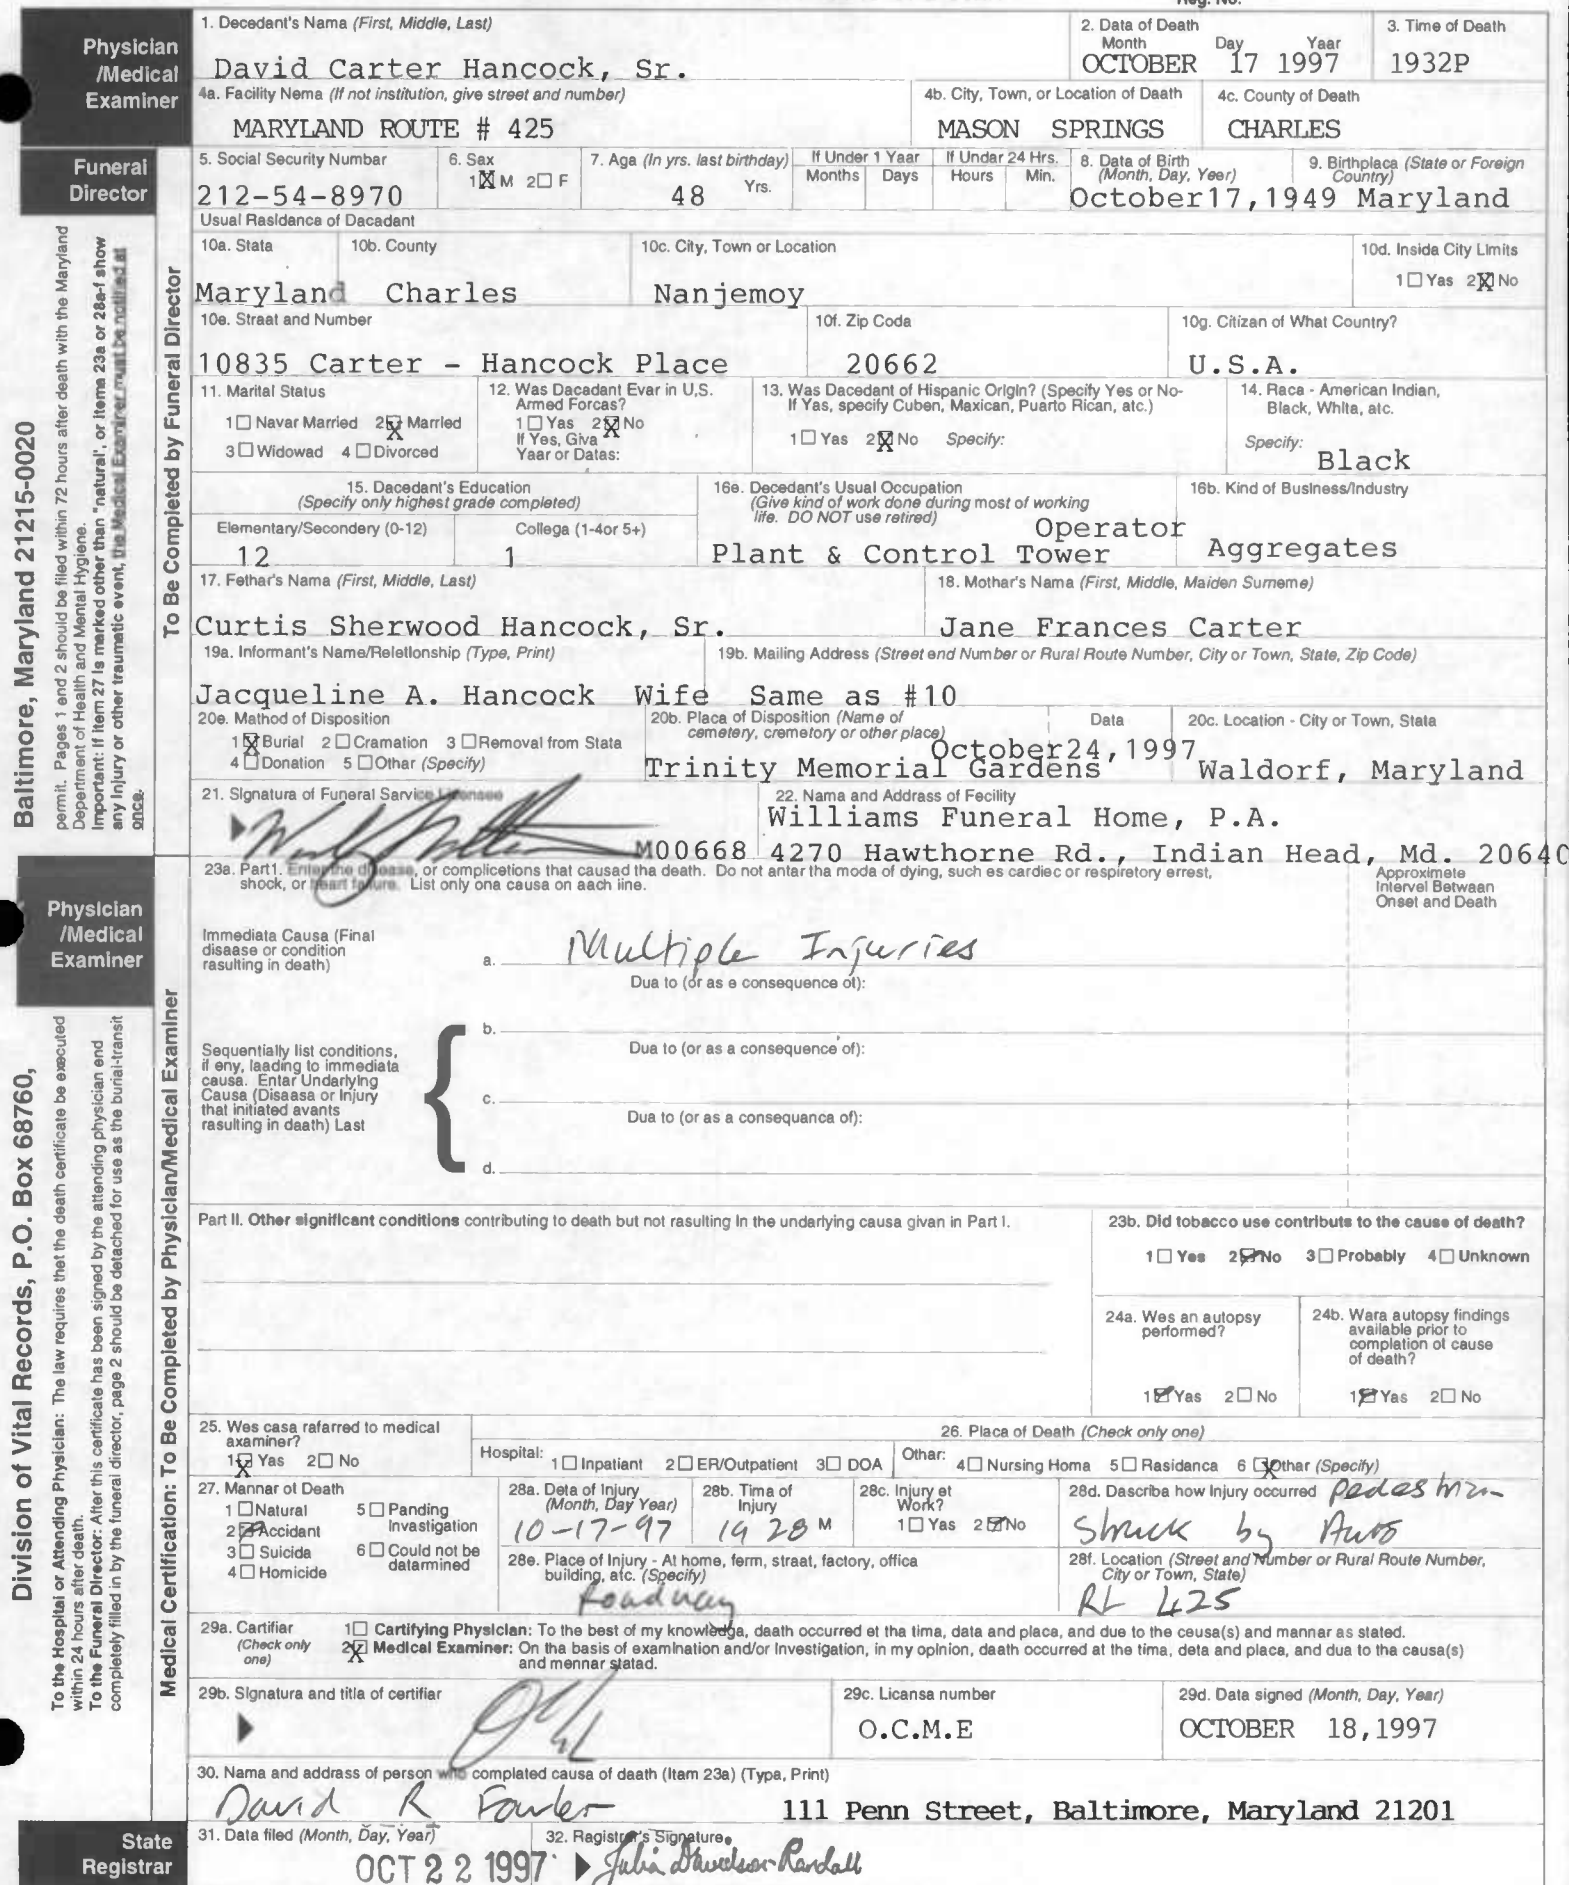 Reg. No.
Physician /Medical Examiner
1. Decedant's Name (First, Middle, Last)
David Carter Hancock, Sr.
2. Data of Death
Month Day Yaar
OCTOBER 17 1997
3. Time of Death
1932P
4a. Facility Nema (If not institution, give street and number)
MARYLAND ROUTE # 425
4b. City, Town, or Location of Daath
MASON SPRINGS
4c. County of Death
CHARLES
Funeral Director
5. Social Security Numbar
212-54-8970
6. Sax
1☒ M 2☐ F
7. Aga (In yrs. last birthday)
48 Yrs.
If Under 1 Yaar
Months Days
If Undar 24 Hrs.
Hours Min.
8. Data of Birth
(Month, Day, Yeer)
October17,1949
9. Birthplaca (State or Foreign Country)
Maryland
Usual Rasidance of Dacadant
10a. Stata
Maryland
10b. County
Charles
10c. City, Town or Location
Nanjemoy
10d. Insida City Limits
1☐ Yas 2☒ No
10e. Straat and Number
10835 Carter - Hancock Place
10f. Zip Coda
20662
10g. Citizan of What Country?
U.S.A.
11. Marital Status
1☐ Navar Married 2☒ Married
3☐ Widowad 4☐ Divorced
12. Was Dacadant Evar in U.S. Armed Forcas?
1☐ Yas 2☒ No
If Yes, Giva
Yaar or Datas:
13. Was Dacedant of Hispanic Origin? (Specify Yes or No- If Yas, specify Cuben, Maxican, Puarto Rican, atc.)
1☐ Yas 2☒ No Specify:
14. Raca - American Indian, Black, Whita, atc.
Specify:
Black
15. Dacadant's Education
(Specify only highest grade completed)
Elementary/Secondery (0-12)
12
Collega (1-4or 5+)
1
16e. Decedant's Usual Occupation
(Give kind of work done during most of working life. DO NOT use retired)
Operator
Plant & Control Tower
16b. Kind of Business/Industry
Aggregates
17. Fethar's Nama (First, Middle, Last)
Curtis Sherwood Hancock, Sr.
18. Mothar's Nama (First, Middle, Maiden Surneme)
Jane Frances Carter
19a. Informant's Name/Reletlonship (Type, Print)
Jacqueline A. Hancock Wife
19b. Mailing Address (Street end Number or Rural Route Number, City or Town, State, Zip Code)
Same as #10
20e. Mathod of Disposition
1☒ Burial 2☐ Cramation 3☐ Removal from Stata
4☐ Donation 5☐ Othar (Specify)
20b. Placa of Disposition (Name of cemetery, cremetory or other place)
Trinity Memorial Gardens
Data
October24,1997
20c. Location - City or Town, Stata
Waldorf, Maryland
21. Signatura of Funeral Sarvice Licensee
M00668
22. Nama and Address of Fecility
Williams Funeral Home, P.A.
4270 Hawthorne Rd., Indian Head, Md. 20640
Physician /Medical Examiner
23a. Part1. Enter the disease, or complicetions that causad tha death. Do not antar tha moda of dying, such es cardiec or respiretory errest,
shock, or heart failure. List only ona causa on aach line.
Approximete Intervel Betwaan Onset and Death
Immediata Causa (Final disaase or condition rasulting in death)
a. Multiple Injuries
Dua to (or as e consequence of):
Sequentially list conditions, if eny, laading to immediata causa. Entar Undarlying Causa (Disaasa or Injury that initiated avants rasulting in daath) Last
b.
Dua to (or as a consequence of):
c.
Dua to (or as a consequanca of):
d.
Part II. Other significant conditions contributing to death but not rasulting In the undarlying causa givan in Part I.
23b. Did tobacco use contributs to the cause of death?
1☐ Yes 2☒ No 3☐ Probably 4☐ Unknown
24a. Wes an autopsy performed?
1☒ Yas 2☐ No
24b. Wara autopsy findings available prior to complation ot cause of death?
1☒ Yas 2☐ No
25. Wes casa rafarred to medical axaminer?
1☒ Yas 2☐ No
26. Placa of Death (Check only one)
Hospital: 1☐ Inpatient 2☐ ER/Outpatient 3☐ DOA
Othar: 4☐ Nursing Homa 5☐ Rasidanca 6☒ Othar (Specify)
27. Mannar ot Death
1☐ Natural 5☐ Panding Invastigation
2☒ Accidant
3☐ Suicida 6☐ Could not be datarmined
4☐ Homicide
28a. Deta of Injury
(Month, Day Year)
10-17-97
28b. Tima of Injury
1928 M
28c. Injury et Work?
1☐ Yas 2☒ No
28d. Dascriba how Injury occurred
Pedestrian
Struck by Auto
28e. Place of Injury - At home, ferm, straat, factory, offica building, atc. (Specify)
Roadway
28f. Location (Street and Number or Rural Route Number, City or Town, State)
Rt 425
29a. Cartifiar
(Check only one)
1☐ Certifying Physician: To the best of my knowledga, daath occurred et tha tima, data and placa, and due to the ceusa(s) and mannar as stated.
2☒ Medical Examiner: On tha basis of examination and/or Investigation, in my opinion, daath occurred at the tima, deta and placa, and due to tha causa(s)
and mennar statad.
29b. Signatura and titla of certifiar
29c. Licansa number
O.C.M.E
29d. Data signed (Month, Day, Year)
OCTOBER 18,1997
30. Nama and address of parson who complated causa of daath (Itam 23a) (Typa, Print)
David R Fowler
111 Penn Street, Baltimore, Maryland 21201
State Registrar
31. Data filed (Month, Day, Year)
OCT 22 1997
32. Registrar's Signature
Julia Davidson-Randall
Baltimore, Maryland 21215-0020
permit. Pages 1 end 2 should be filed within 72 hours after death with the Maryland
Depertment of Health and Mental Hygiene.
Important: If item 27 is marked other than "natural', or items 23a or 28a-f show
any Injury or other traumatic event, the Medical Examiner must be notified at
once.
To Be Completed by Funeral Director
Division of Vital Records, P.O. Box 68760,
To the Hospital or Attending Physician: The law requires that the death certificate be executed
within 24 hours after death.
To the Funeral Director: After this certificate has been signed by the attending physician end
completely filled in by the funeral director, page 2 should be detached for use as the burial-transit
Medical Certification: To Be Completed by Physician/Medical Examiner